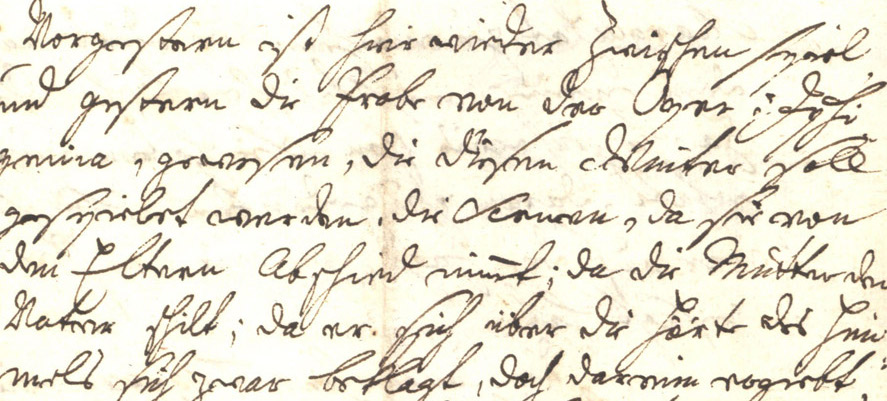 Vorgestern ist hier wieder Zwischen spiel
und gestern die Probe von der Oper: Iphi
genia, gewesen, die diesen Winter soll
gespielet werden. die Scenen, da sie von
den Eltern Abschied nimmt; da die Mutter den
Vater schilt; da er sich über die Härte des Him¬
mels sich zwar beklagt, doch darein ergiebt,